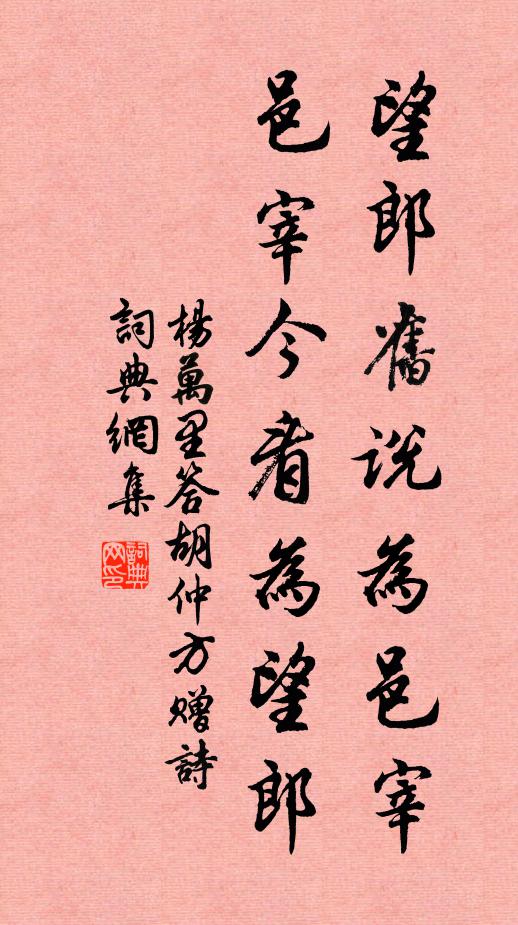 望郎舊説為邑宰
邑宰今看為望郎
楊萬里答胡仲方贈詩
詞典網集
詞典網印